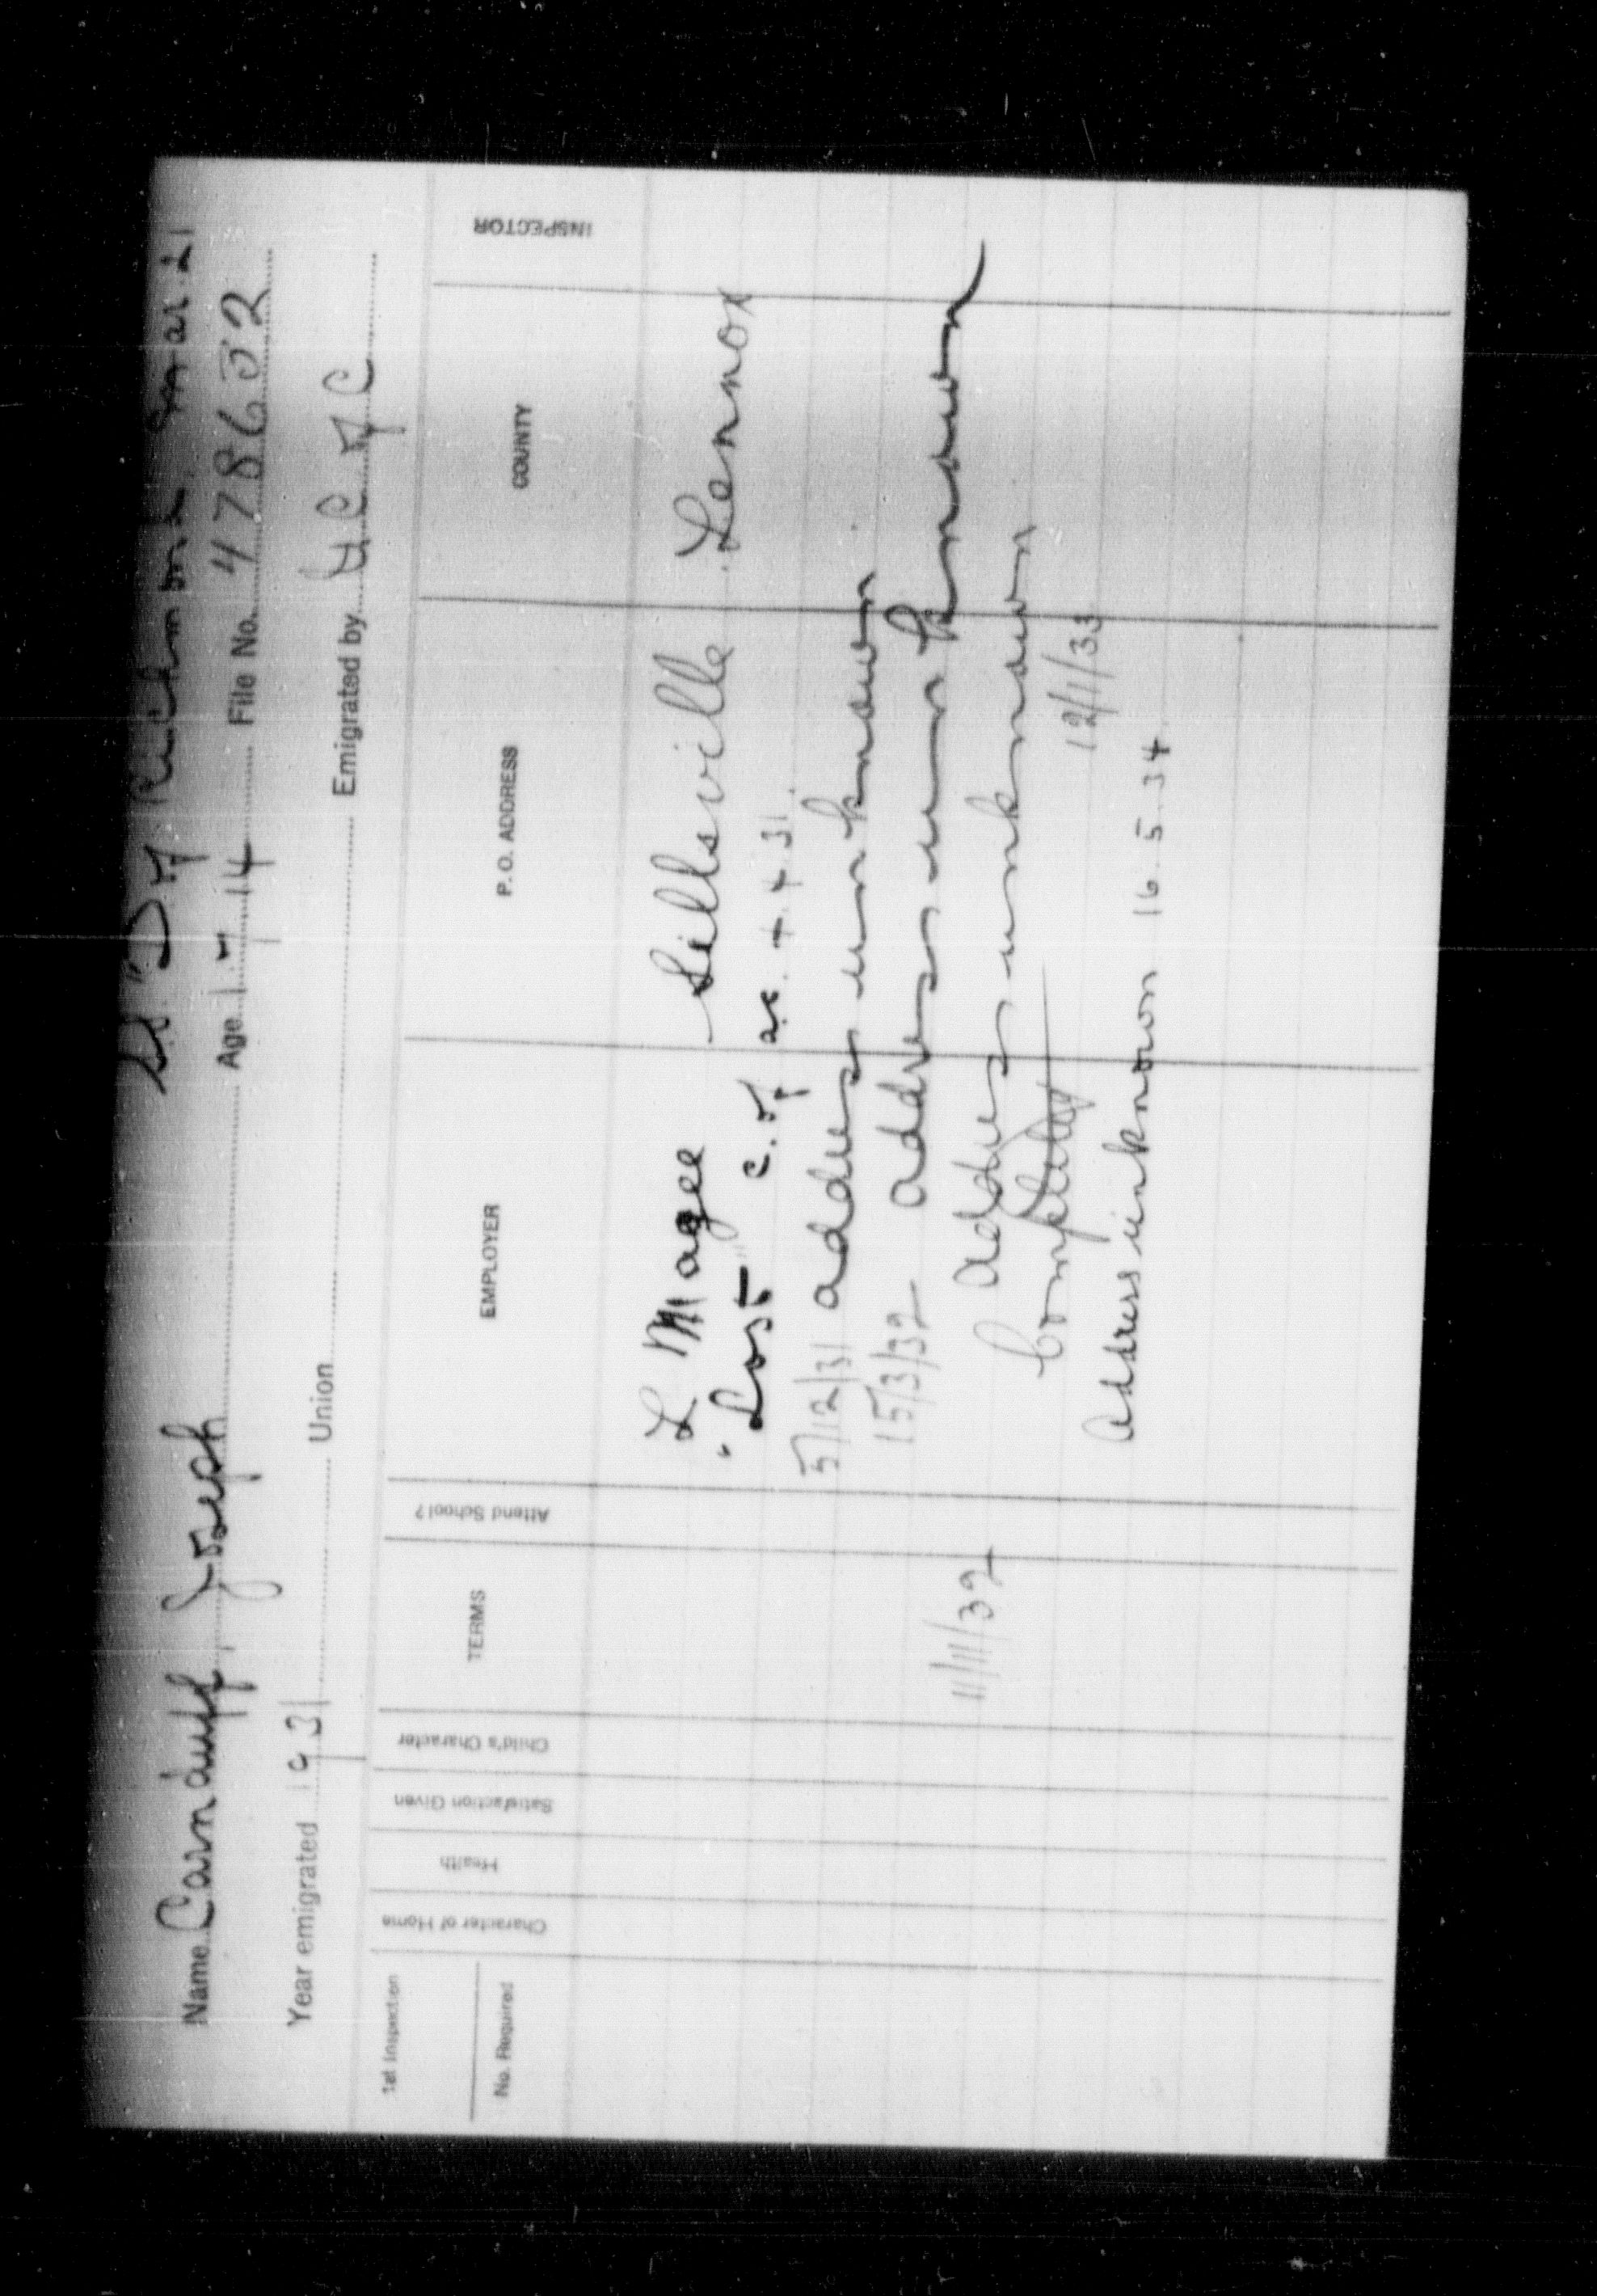 S.S. "D. of Richmond Mar. 21
Name Carnduff, Joseph Age 1.7.14 File No. 478652
Year emigrated 1931 Union Emigrated by U C of C
1st Inspection
No. Required
Character of Home
Health
Satisfaction Given
Child's Character
TERMS
Attend School?
EMPLOYER
P. O. ADDRESS
COUNTY
INSPECTOR
L Magee Sillsville Lennox
" Lost" c. of ac. 4. 4 31.
5/12/31 address unknown
15/3/32 address unknown
11/11/32 address unknown
Completed 12/1/33
Address unknown 16. 5. 34